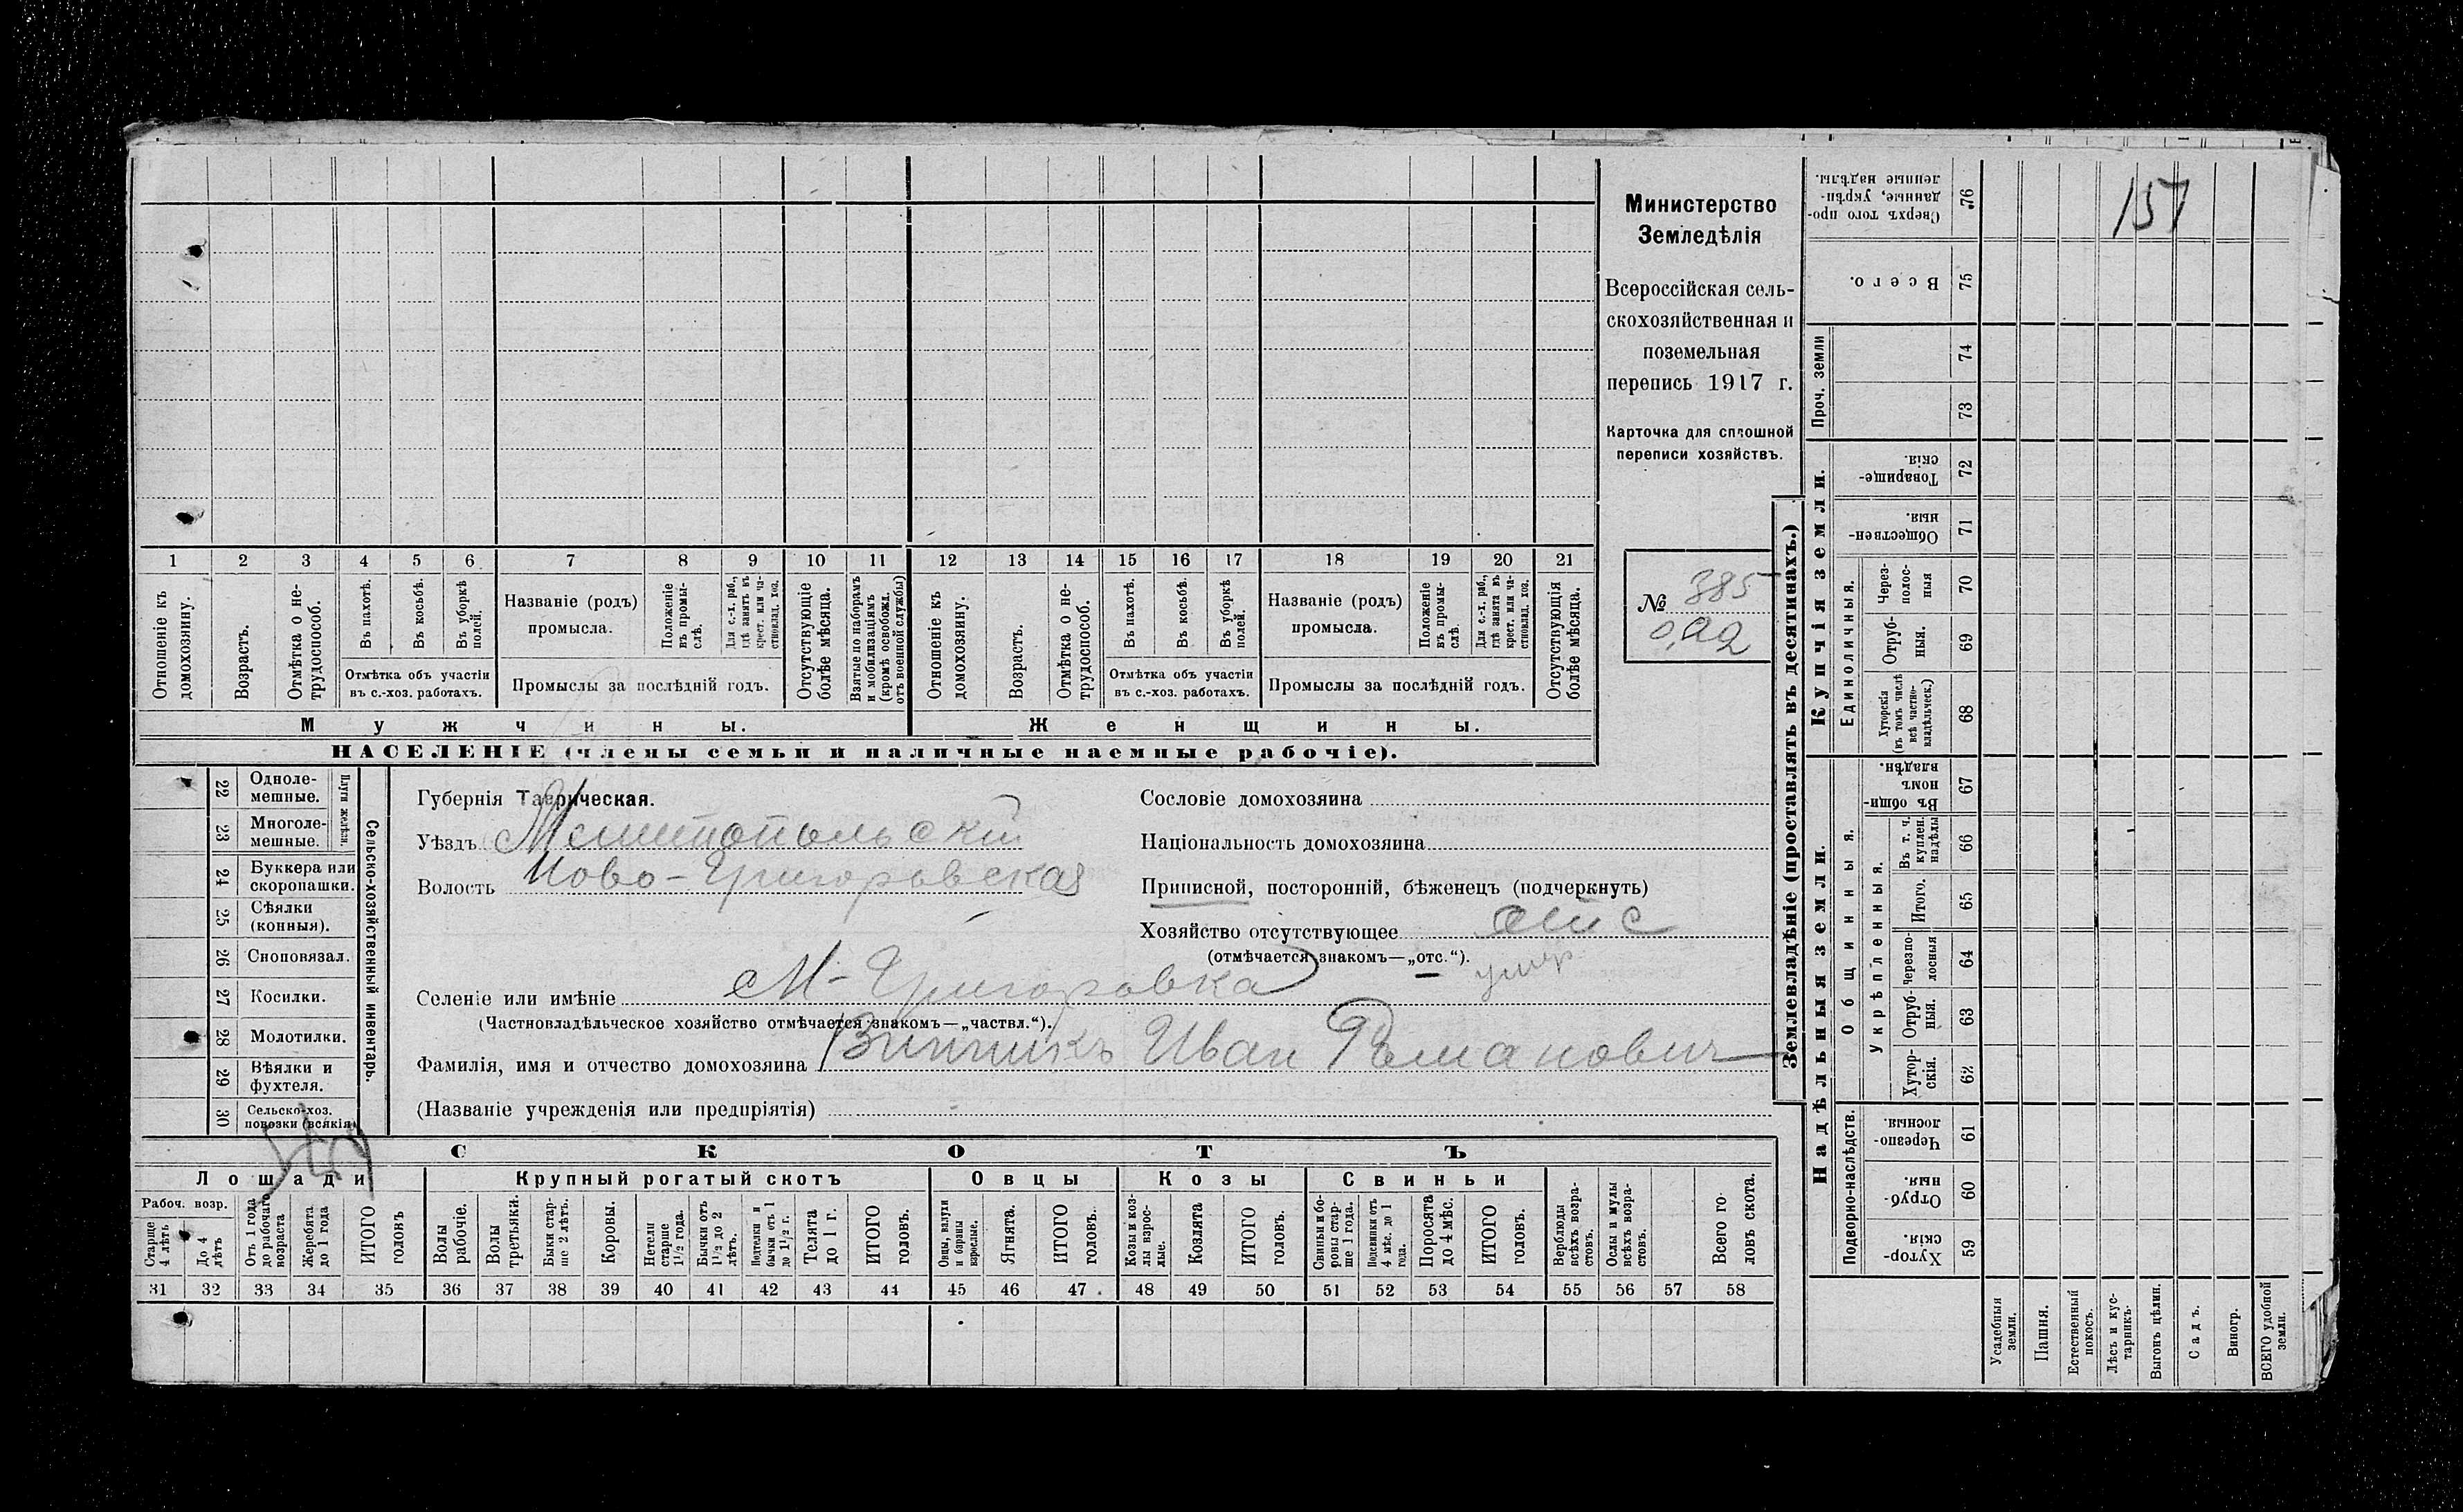 Министерство
Земледѣлія
Всероссійская сель-
скохозяйственная и
поземельная
перепись 1917 г.
Карточка для сплошной
переписи хозяйствъ.
№ 385
1 2 3 4 5 6 7 8 9 10 11 12 13 14 15 16 17 18 19 20 21
Отношеніе къ домохозяину.
Возрастъ.
Отмѣтка о не-трудоспособ.
Въ пахотѣ.
Въ косьбѣ.
Въ уборкѣ полей.
Отмѣтка объ участіи
въ с.-хоз. работахъ.
Названіе (родъ)
промысла.
Положеніе въ промы-слѣ.
Для с.-х. раб., гдѣ занятъ въ крест. или ча-стновлад. хоз.
Промыслы за послѣдній годъ.
Отсутствующіе болѣе мѣсяца.
Взятые по наборамъ и мобилизаціямъ (кромѣ освобожд. отъ военной службы)
Отношеніе къ домохозяину.
Возрастъ.
Отмѣтка о не-трудоспособ.
Въ пахотѣ.
Въ косьбѣ.
Въ уборкѣ полей.
Отмѣтка объ участіи
въ с.-хоз. работахъ.
Названіе (родъ)
промысла.
Положеніе въ промы-слѣ.
Для с.-х. раб., гдѣ занята въ крест. или ча-стновлад. хоз.
Промыслы за послѣдній годъ.
Отсутствующія болѣе мѣсяца.
Мужчины. Женщины.
НАСЕЛЕНІЕ (члены семьи и наличные наемные рабочіе).
22 Одноле-мешные.
23 Многоле-мешные.
Плуги желѣзн.
24 Буккера или скоропашки.
25 Сѣялки (конныя).
26 Сноповязал.
27 Косилки.
28 Молотилки.
29 Вѣялки и фухтеля.
30 Сельско-хоз. повозки (всякія)
Сельско-хозяйственный инвентарь.
Губернія Таврическая.
Уѣздъ Мелитопольскій
Волость Ново-Григоровская
Сословіе домохозяина
Національность домохозяина
Приписной, посторонній, бѣженецъ (подчеркнуть)
Хозяйство отсутствующее отс
(отмѣчается знакомъ—„отс.“).
умер
Селеніе или имѣніе М-Григоровка
(Частновладѣльческое хозяйство отмѣчается знакомъ—„частвл.“).
Фамилія, имя и отчество домохозяина Винникъ Иван Романович
(Названіе учрежденія или предпріятія)
СКОТЪ
Лошади Крупный рогатый скотъ Овцы Козы Свиньи
Рабоч. возр.
Старше 4 лѣтъ
До 4 лѣтъ
Отъ 1 года до рабочаго возраста
Жеребята до 1 года
ИТОГО головъ
Волы рабочіе.
Волы третьяки.
Быки стар-ше 2 лѣтъ.
Коровы.
Нетели старше 1½ года.
Бычки отъ 1½ до 2 лѣтъ.
Подтелки и бычки отъ 1 до 1½ г.
Телята до 1 г.
ИТОГО головъ.
Овцы, валухи и бараны взрослые.
Ягнята.
ИТОГО головъ.
Козы и коз-лы взрос-лые.
Козлята
ИТОГО головъ.
Свиньи и бо-ровы стар-ше 1 года.
Подсвинки отъ 4 мѣс. до 1 года.
Поросята до 4 мѣс.
ИТОГО головъ.
Верблюды всѣхъ возра-стовъ.
Ослы и мулы всѣхъ возра-стовъ.
Всего го-ловъ скота.
31 32 33 34 35 36 37 38 39 40 41 42 43 44 45 46 47 48 49 50 51 52 53 54 55 56 57 58
Землевладѣніе (проставлять въ десятинахъ.)
157
Сверхъ того про-данные, укрѣп-ленные надѣлы. 76
Всего. 75
Проч. земли
74
73
Купчія земли.
Товарище-скія. 72
Обществен-ныя. 71
Единоличныя.
Через-полос-ныя 70
Отруб-ныя. 69
Хуторскія (въ томъ числѣ всѣ частно-владѣльческ.) 68
Надѣльныя земли.
Общинныя.
Въ общи-номъ владѣн. 67
Укрѣпленныя.
Въ т. ч. куплен. надѣлы 66
Итого. 65
Черезпо-лосныя 64
Отруб-ныя. 63
Хутор-скія. 62
Подворно-наслѣдств.
Черезпо-лосныя. 61
Отруб-ныя. 60
Хутор-скія. 59
Усадебныя земли.
Пашня.
Естественный покосъ.
Лѣсъ и кус-тарникъ.
Выгонъ цѣлин.
Садъ.
Виногр.
ВСЕГО удобной земли.